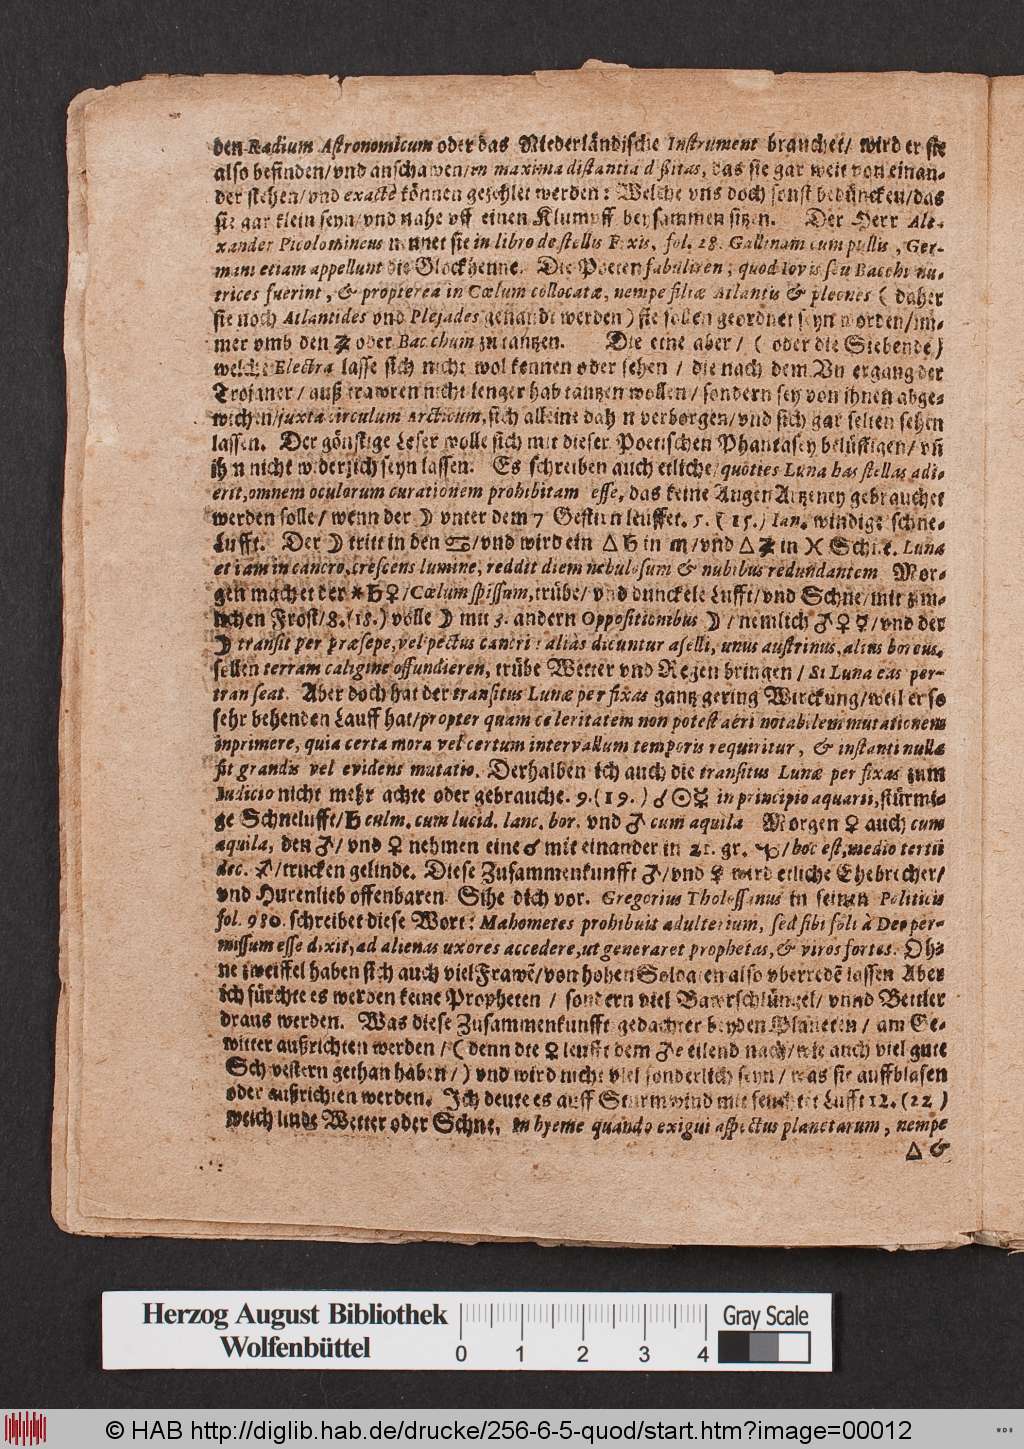 den Radium Astronomicum oder das Niederländische Instrument brauchet/ wird er sie
also befinden/vnd anschawen/in maxima distantia dissitas, das sie gar weit von einan-
der stehen/vnd exactè können gezehlet werden: Welche vns doch sonst bedüncken/das
sie gar klein seyn/vnd nahe vff einen Klumpff beysammen sitzen. Der Herr Ale-
xander Picolomineus nennet sie in libro de stellis Fixis, fol. 28. Gallinam cum pullis, Ger-
mani etiam appellunt die Gluckhenne. Die Poeten fabuliren; quod Iovis seu Bacchi nu-
trices fuerint, & propterea in Cœlum collocatæ, nempe filiæ Atlantis & pleones ( daher
sie noch Atlantides vnd Plejades genandt werden) sie sollen geordnet seyn worden/im-
mer vmb den ♃ oder Bacchum zu tantzen. Die eine aber/ ( oder die Siebende)
welche Electra lasse sich nicht wol kennen oder sehen / die nach dem Vntergang der
Trojaner/auß trawren nicht lenger hab tantzen wollen/sondern sey von ihnen abge-
wichen/juxta circulum Arcticum, sich alleine dahin verborgen/vnd sich gar selten sehen
lassen. Der gönstige Leser wolle sich mit dieser Poetischen Phantasey belüstigen/vñ
ihn nicht widerzich seyn lassen. Es schreiben auch etliche/quoties Luna has stellas adi-
erit, omnem oculorum curationem prohibitam esse, das keine Augen Artzeney gebrauchet
werden solle/ wenn der ☽ vnter dem 7 Gestirn leuffet. 5. (15.) Ian. windige schne-
Lufft. Der ☽ tritt in den ♋/vnd wird ein △ ♄ in ♏/vnd △ ♃ in ♓ Schie. Luna
etiam in cancro, crescens lumine, reddit diem nebulosum & nubibus redundantem Mor-
gen machet der ⚹ ♄ ♀/Cœlum spissum, trübe/ vnd dunckele Lufft/vnd Schne/mit zim-
lichen Frost/8.(18.) volle ☽ mit 3. andern Oppositionibus ☽/nemlich ♂ ♀ ☿/vnd der
☽ transit per præsepe, vel pectus cancri: alias dicuntur aselli, unus austrinus, alius boreus.
sollen terram caligine offundieren, trübe Wetter vnd Regen bringen/ Si Luna eas per-
transeat. Aber doch hat der transitus Lunæ per fixas gantz gering Wirckung/weil er so
sehr behenden Lauff hat/propter quam celeritatem non potest aëri notabilem mutationem
inprimere, quia certa mora vel certum intervallum temporis requiritur, & instanti nulla
fit grandis vel evidens mutatio. Derhalben ich auch die transitus Lunæ per fixas zum
Iudicio nicht mehr achte oder gebrauche. 9.(19.) ☌ ☉ ☿ in principio aquarii, stürmi-
ge Schnelufft/♄ culm. cum lucid. lanc. bor. vnd ♂ cum aquila Morgen ♀ auch cum
aquila, den ♂/vnd ♀ nehmen eine ☌ mit einander in 21. gr. ♑/hoc est, medio tertii
dec. ♐/trucken gelinde. Diese Zusammenkunfft ♂/vnd ♀ wird etliche Ehebricher/
vnd Hurenlieb offenbaren Sihe dich vor. Gregorius Tholossanus in seinen Politicis
fol. 980. schreibet diese Wort: Mahometes prohibuit adulterium, sed sibi soli à Deo per-
missum esse dixit, ad alienas uxores accedere, ut generaret prophetas, & viros fortes. Oh-
ne zweiffel haben sich auch viel Frawē/von hohen Soldaten also vberredē lassen Aber
ich fürchte es werden keine Propheten / sondern viel Bawrschlüngel/ vnnd Bettler
draus werden. Was diese Zusammenkunfft gedachter beyden Planeten/ am Ge-
witter außrichten werden/ ( denn die ♀ leufft dem ♂ e eilend nach/wie auch viel gute
Schwestern gethan haben/) vnd wird nicht viel sonderlich seyn/was sie auffblasen
oder außrichten werden. Ich deute es auff Sturmwind mit feuchter Lufft 12. (22)
weich linde Wetter oder Schne, in hyeme quando exigui aspectus planetarum, nempe
△ &
Herzog August Bibliothek
Wolfenbüttel
0 1 2 3 4
Gray Scale
© HAB http://diglib.hab.de/drucke/256-6-5-quod/start.htm?image=00012